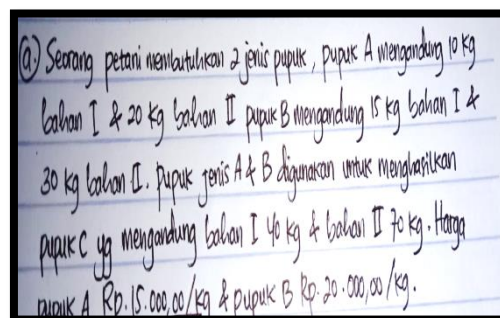 (a.) Seorang petani membutuhkan 2 jenis pupuk, pupuk A mengandung 10 kg
bahan I & 20 kg bahan II pupuk B mengandung 15 kg bahan I &
30 kg bahan II. pupuk jenis A & B digunakan untuk menghasilkan
pupuk C yg mengandung bahan I 40 kg & bahan II 70 kg. Harga
pupuk A Rp. 15.000,00/kg & pupuk B Rp. 20.000,00/kg.